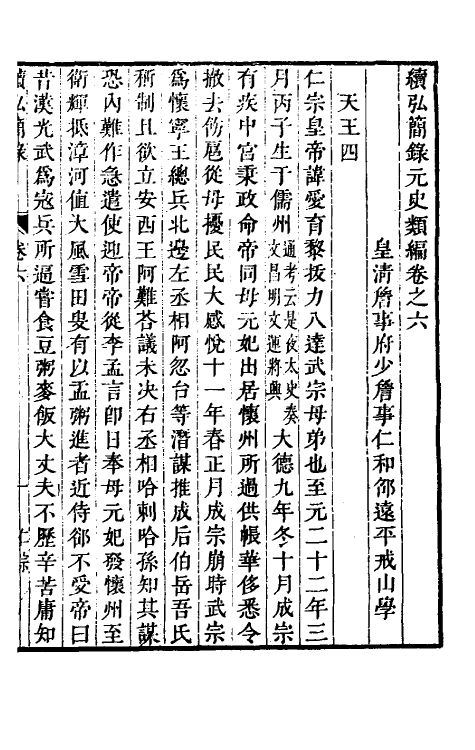 續弘簡錄元史類編卷之六
皇清詹事府少詹事仁和邵遠平戒山學
天王四
仁宗皇帝諱愛育黎拔力八達武宗母弟也至元二十二年三
月丙子生于儒州通考云是夜太史奏文昌明文運將興大德九年冬十月成宗
有疾中宮秉政命帝同母元妃出居懷州所過供帳華侈悉令
撤去飭扈從毋擾民民大感悅十一年春正月成宗崩時武宗
爲懷寧王總兵北邊左丞相阿忽台等潛謀推成后伯岳吾氏
稱制且欲立安西王阿難荅議未决右丞相哈剌哈孫知其謀
恐內難作急遣使迎帝帝從李孟言卽日奉母元妃發懷州至
衛輝抵漳河值大風雪田叟有以盂粥進者近侍郤不受帝曰
昔漢光武爲寇兵所逼嘗食豆粥麥飯大丈夫不歷辛苦庸知
續弘簡錄
卷六
一
仁宗